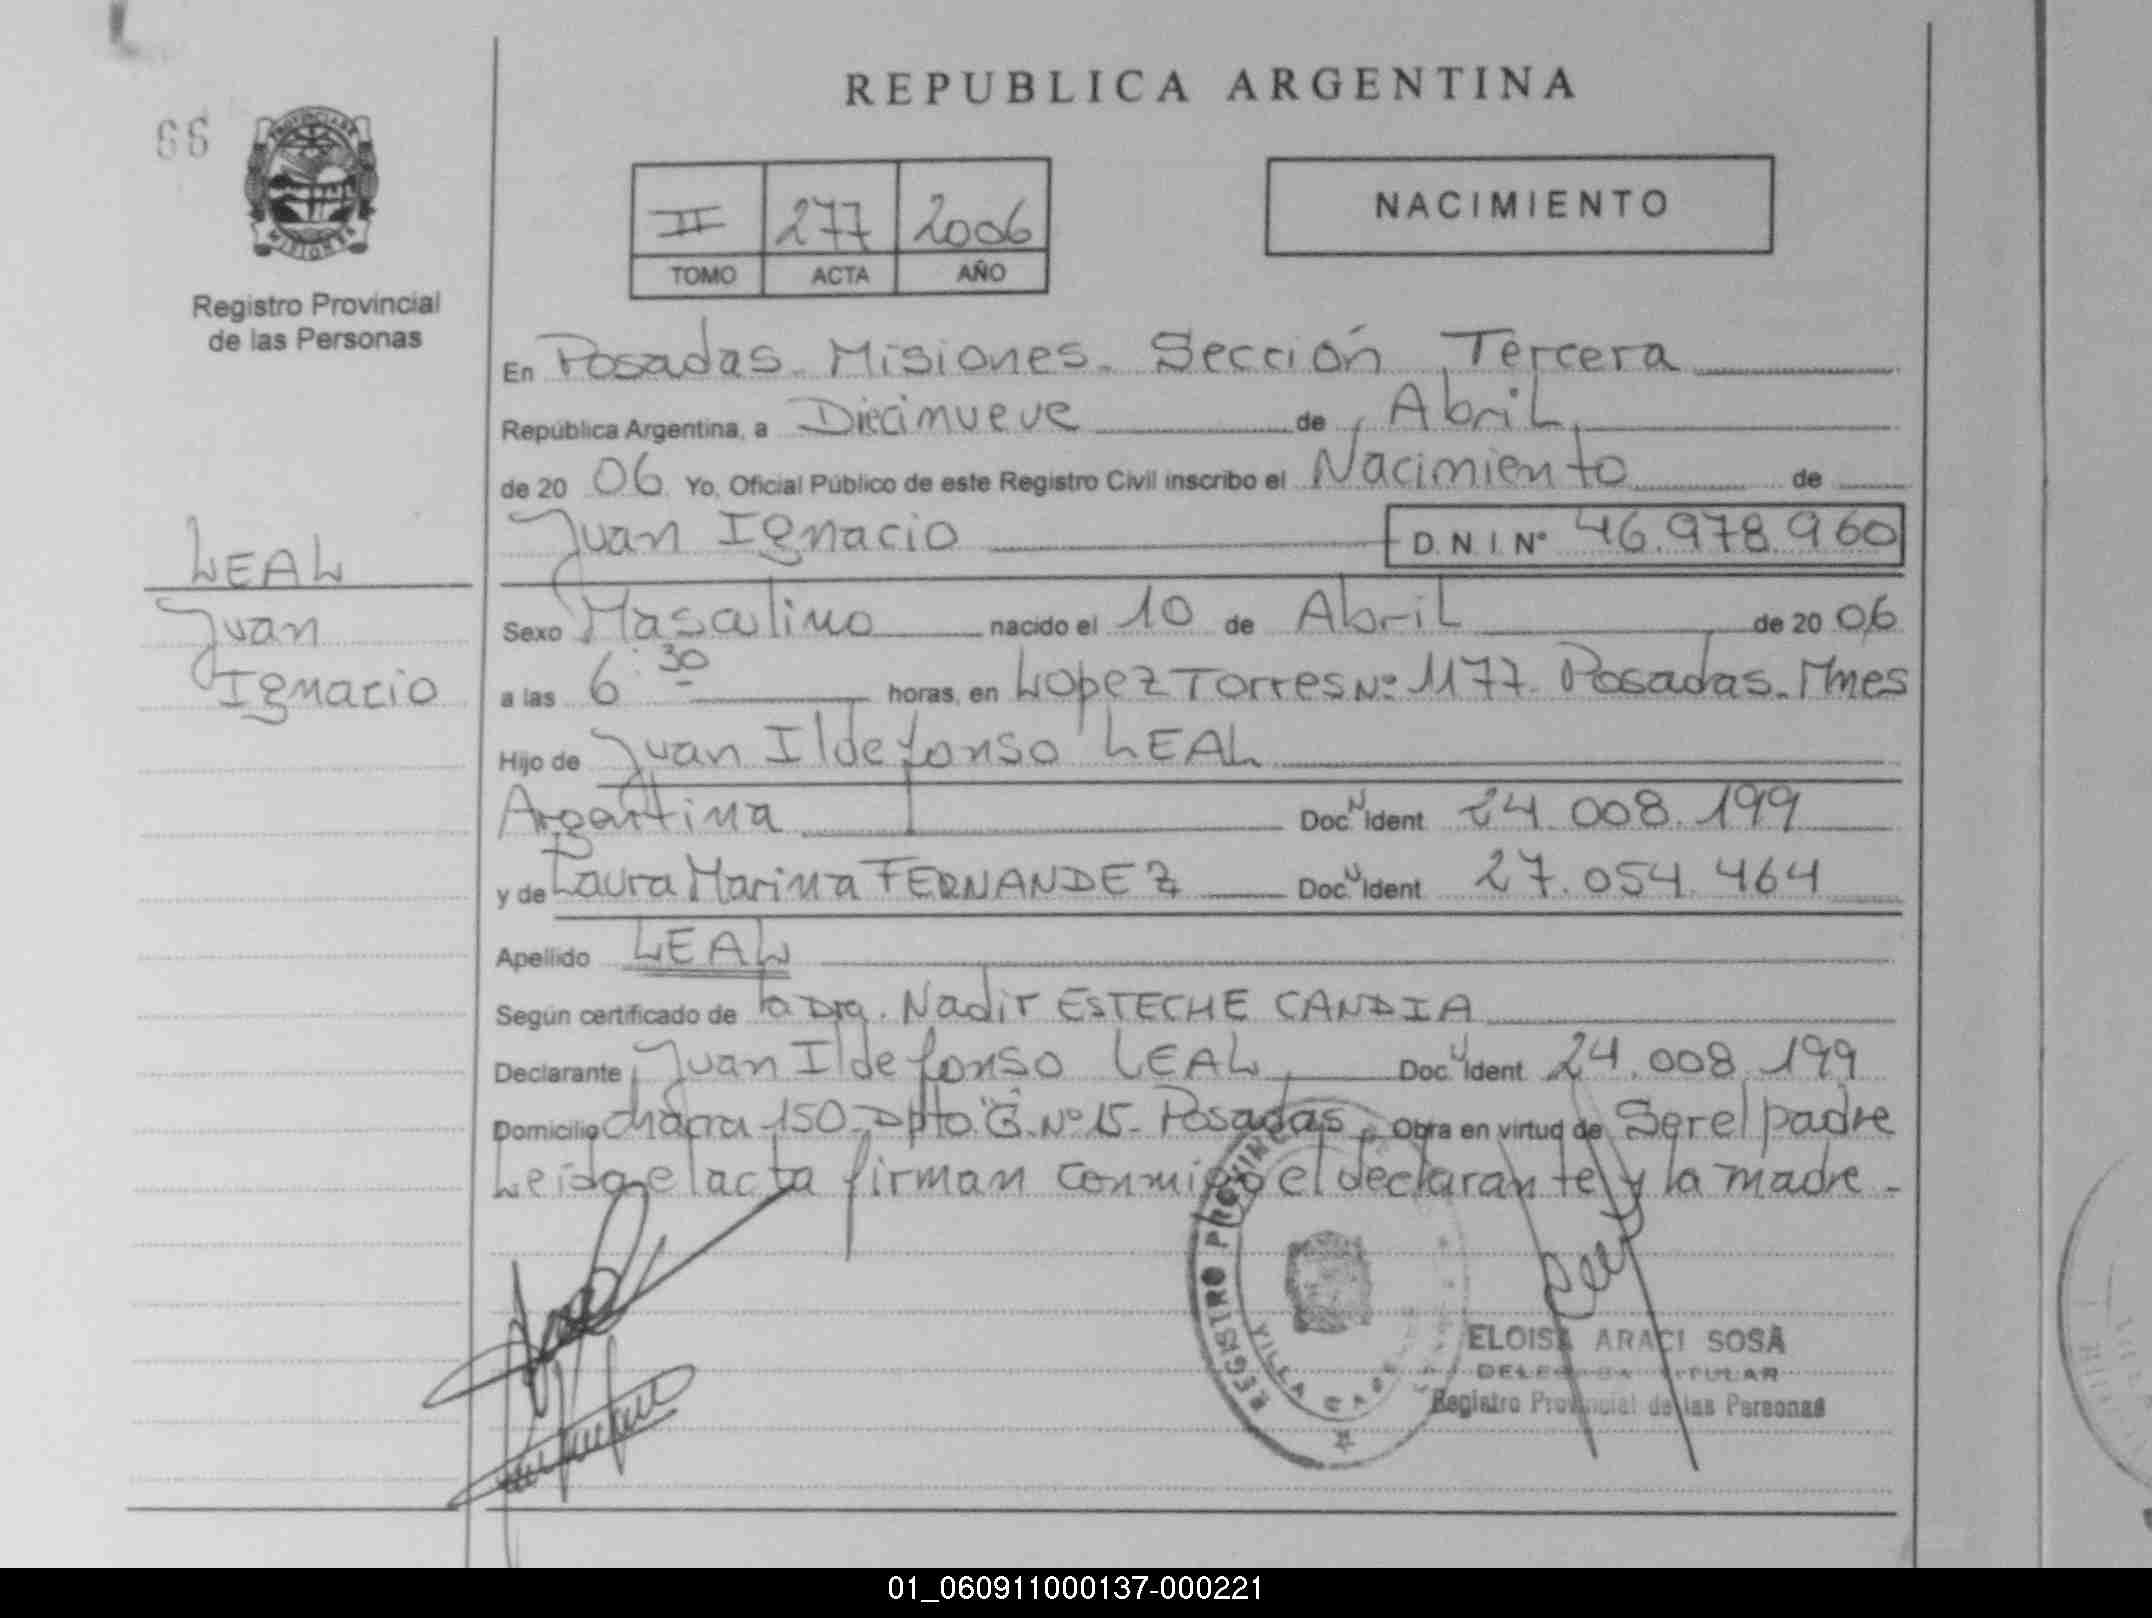 REPUBLICA ARGENTINA
66
PROVINCIA DE
MISIONES
Registro Provincial
de las Personas
II 277 2006
TOMO ACTA AÑO
NACIMIENTO
En Posadas - Misiones - Sección Tercera
República Argentina, a Diecinueve de Abril
de 20 06 Yo, Oficial Público de este Registro Civil inscribo el Nacimiento de
Juan Ignacio D.N.I. Nº 46.978.960
LEAL
Juan
Ignacio
Sexo Masculino nacido el 10 de Abril de 20 06
a las 6:30 horas, en Lopez Torres Nº 1177 - Posadas - Mnes
Hijo de Juan Ildefonso LEAL
Argentina Doc. N Ident 24.008.199
y de Laura Marina FERNANDEZ Doc. U Ident 27.054.464
Apellido LEAL
Según certificado de la Dra. Nadir ESTECHE CANDIA
Declarante Juan Ildefonso LEAL Doc. U Ident 24.008.199
Domicilio chacra 150 - Dpto "G" Nº 15 - Posadas Obra en virtud de Ser el padre
Leída el acta firman conmigo el declarante y la madre -
REGISTRO PROVINC
VILLA CABE
ELOISA ARACI SOSA
DELEGADA TITULAR
Registro Provincial de las Personas
01_060911000137-000221